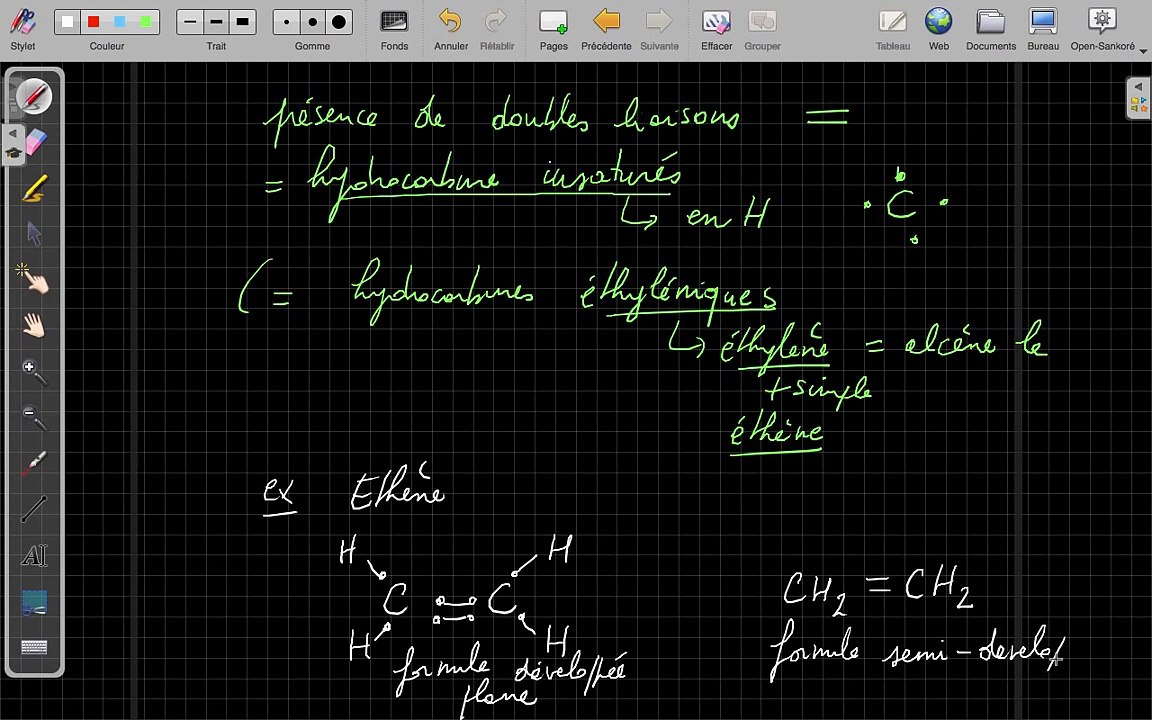 Stylet Couleur Trait Gomme Fonds Annuler Rétablir Pages Précédente Suivante Effacer Grouper Tableau Web Documents Bureau Open-Sankoré
présence de doubles liaisons =
= hydrocarbure insaturés
↳ en H
• C •
(= hydrocarbures éthyléniques
↳ éthylène = alcène le
+ simple
éthène
ex Ethène
H H
C = C
H H
CH2 = CH2
formule développée
plane
formule semi-dévelop